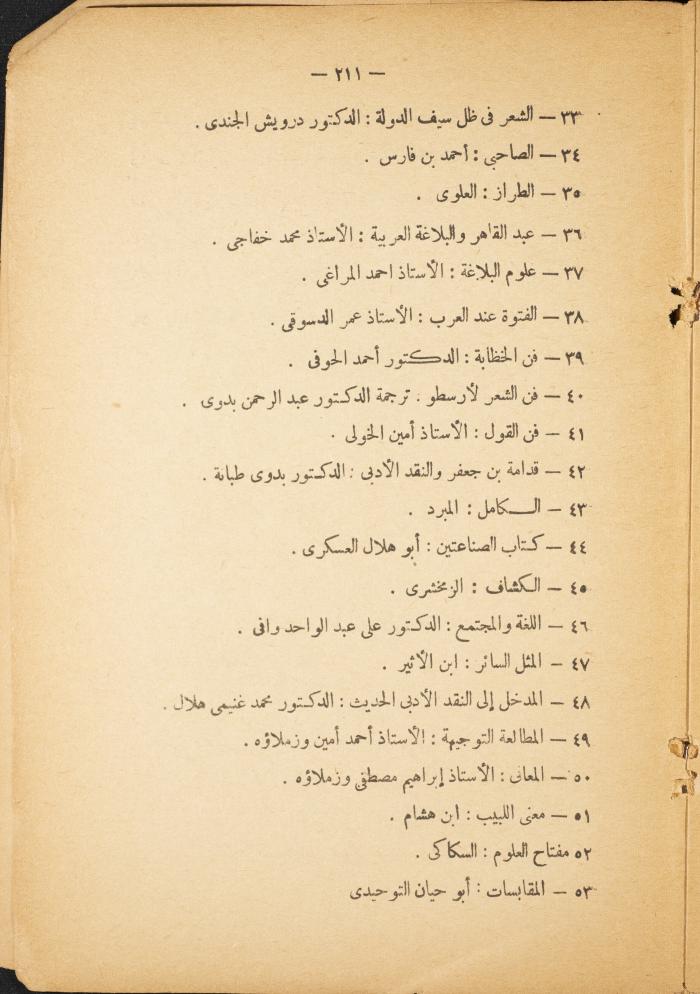 — ٢١١ —
٣٣ — الشعر فى ظل سيف الدولة : الدكتور درويش الجندى .
٣٤ — الصاحبى : أحمد بن فارس .
٣٥ — الطراز : العلوى .
٣٦ — عبد القاهر والبلاغة العربية : الأستاذ محمد خفاجى .
٣٧ — علوم البلاغة : الأستاذ احمد المراغى .
٣٨ — الفتوة عند العرب : الأستاذ عمر الدسوقى .
٣٩ — فن الخطابة : الدكتور أحمد الحوفى .
٤٠ — فن الشعر لأرسطو . ترجمة الدكتور عبد الرحمن بدوى .
٤١ — فن القول : الأستاذ أمين الخولى .
٤٢ — قدامة بن جعفر والنقد الأدبى : الدكتور بدوى طبانة .
٤٣ — الكامل : المبرد .
٤٤ — كتاب الصناعتين : أبو هلال العسكرى .
٤٥ — الكشاف : الزمخشرى .
٤٦ — اللغة والمجتمع : الدكتور على عبد الواحد وافى .
٤٧ — المثل السائر : ابن الأثير .
٤٨ — المدخل إلى النقد الأدبى الحديث : الدكتور محمد غنيمى هلال .
٤٩ — المطالعة التوجيهية : الأستاذ أحمد أمين وزملاؤه .
٥٠ — المعانى : الأستاذ إبراهيم مصطفى وزملاؤه .
٥١ — معنى اللبيب : ابن هشام .
٥٢ مفتاح العلوم : السكاكى .
٥٣ — المقابسات : أبو حيان التوحيدى